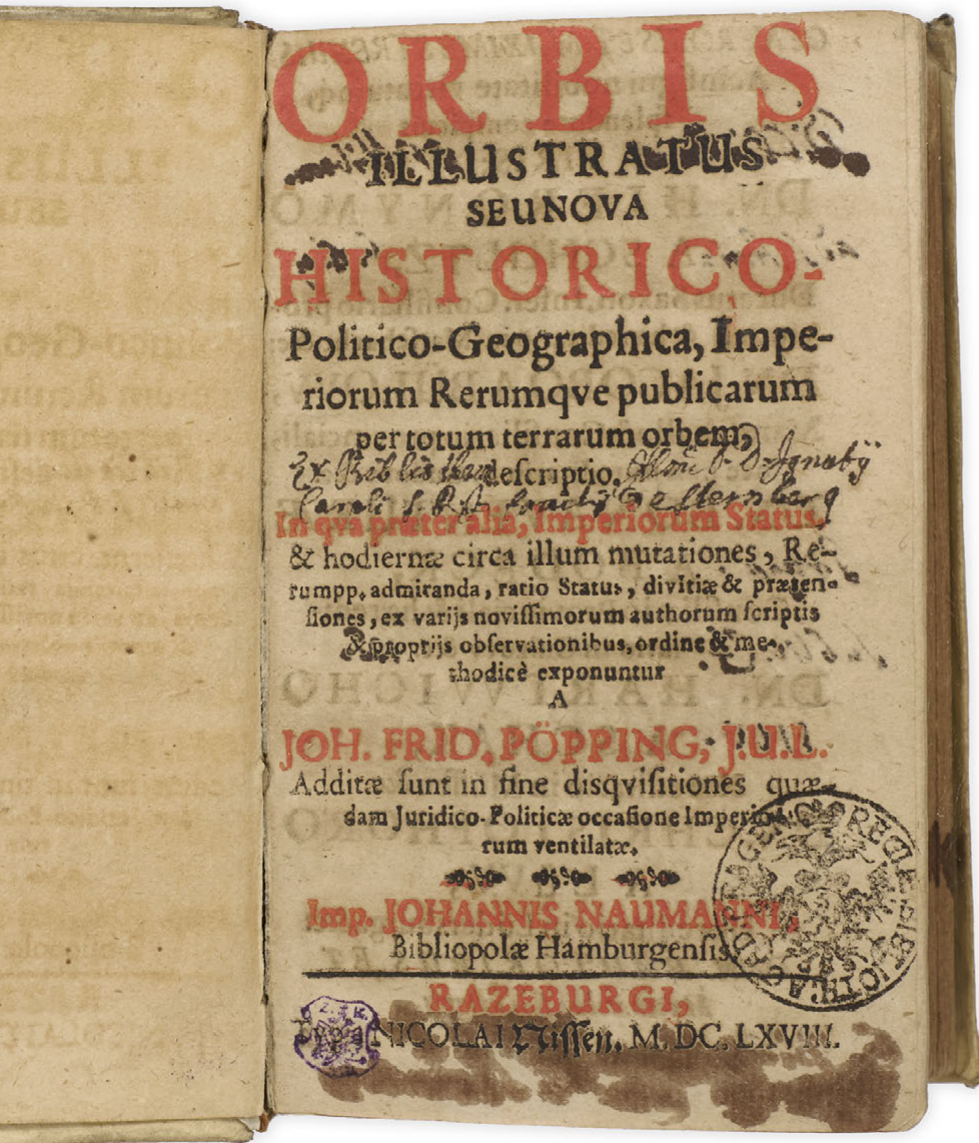 ORBIS
ILLUSTRATUS
SEU NOVA
HISTORICO-
Politico-Geographica, Impe-
riorum Rerumqve publicarum
per totum terrarum orbem,
Ex Bibliotheca
descriptio.
Caroli S. R. I. Comitis de Sternberg
In qva præter alia, Imperiorum Status,
& hodiernæ circa illum mutationes, Re-
rumpp. admiranda, ratio Status, divitiæ & præten-
siones, ex varijs novissimorum authorum scriptis
& proprijs observationibus, ordine & me-
thodicè exponuntur
A
JOH. FRID. PÖPPING, J.U.L.
Additæ sunt in fine disqvisitiones quæ-
dam Juridico-Politicæ occasione Imperio-
rum ventilatæ.
Imp. JOHANNIS NAUMANNI,
Bibliopolæ Hamburgensis.
RAZEBURGI,
Typis NICOLAI Nissen. M. DC. LXVIII.